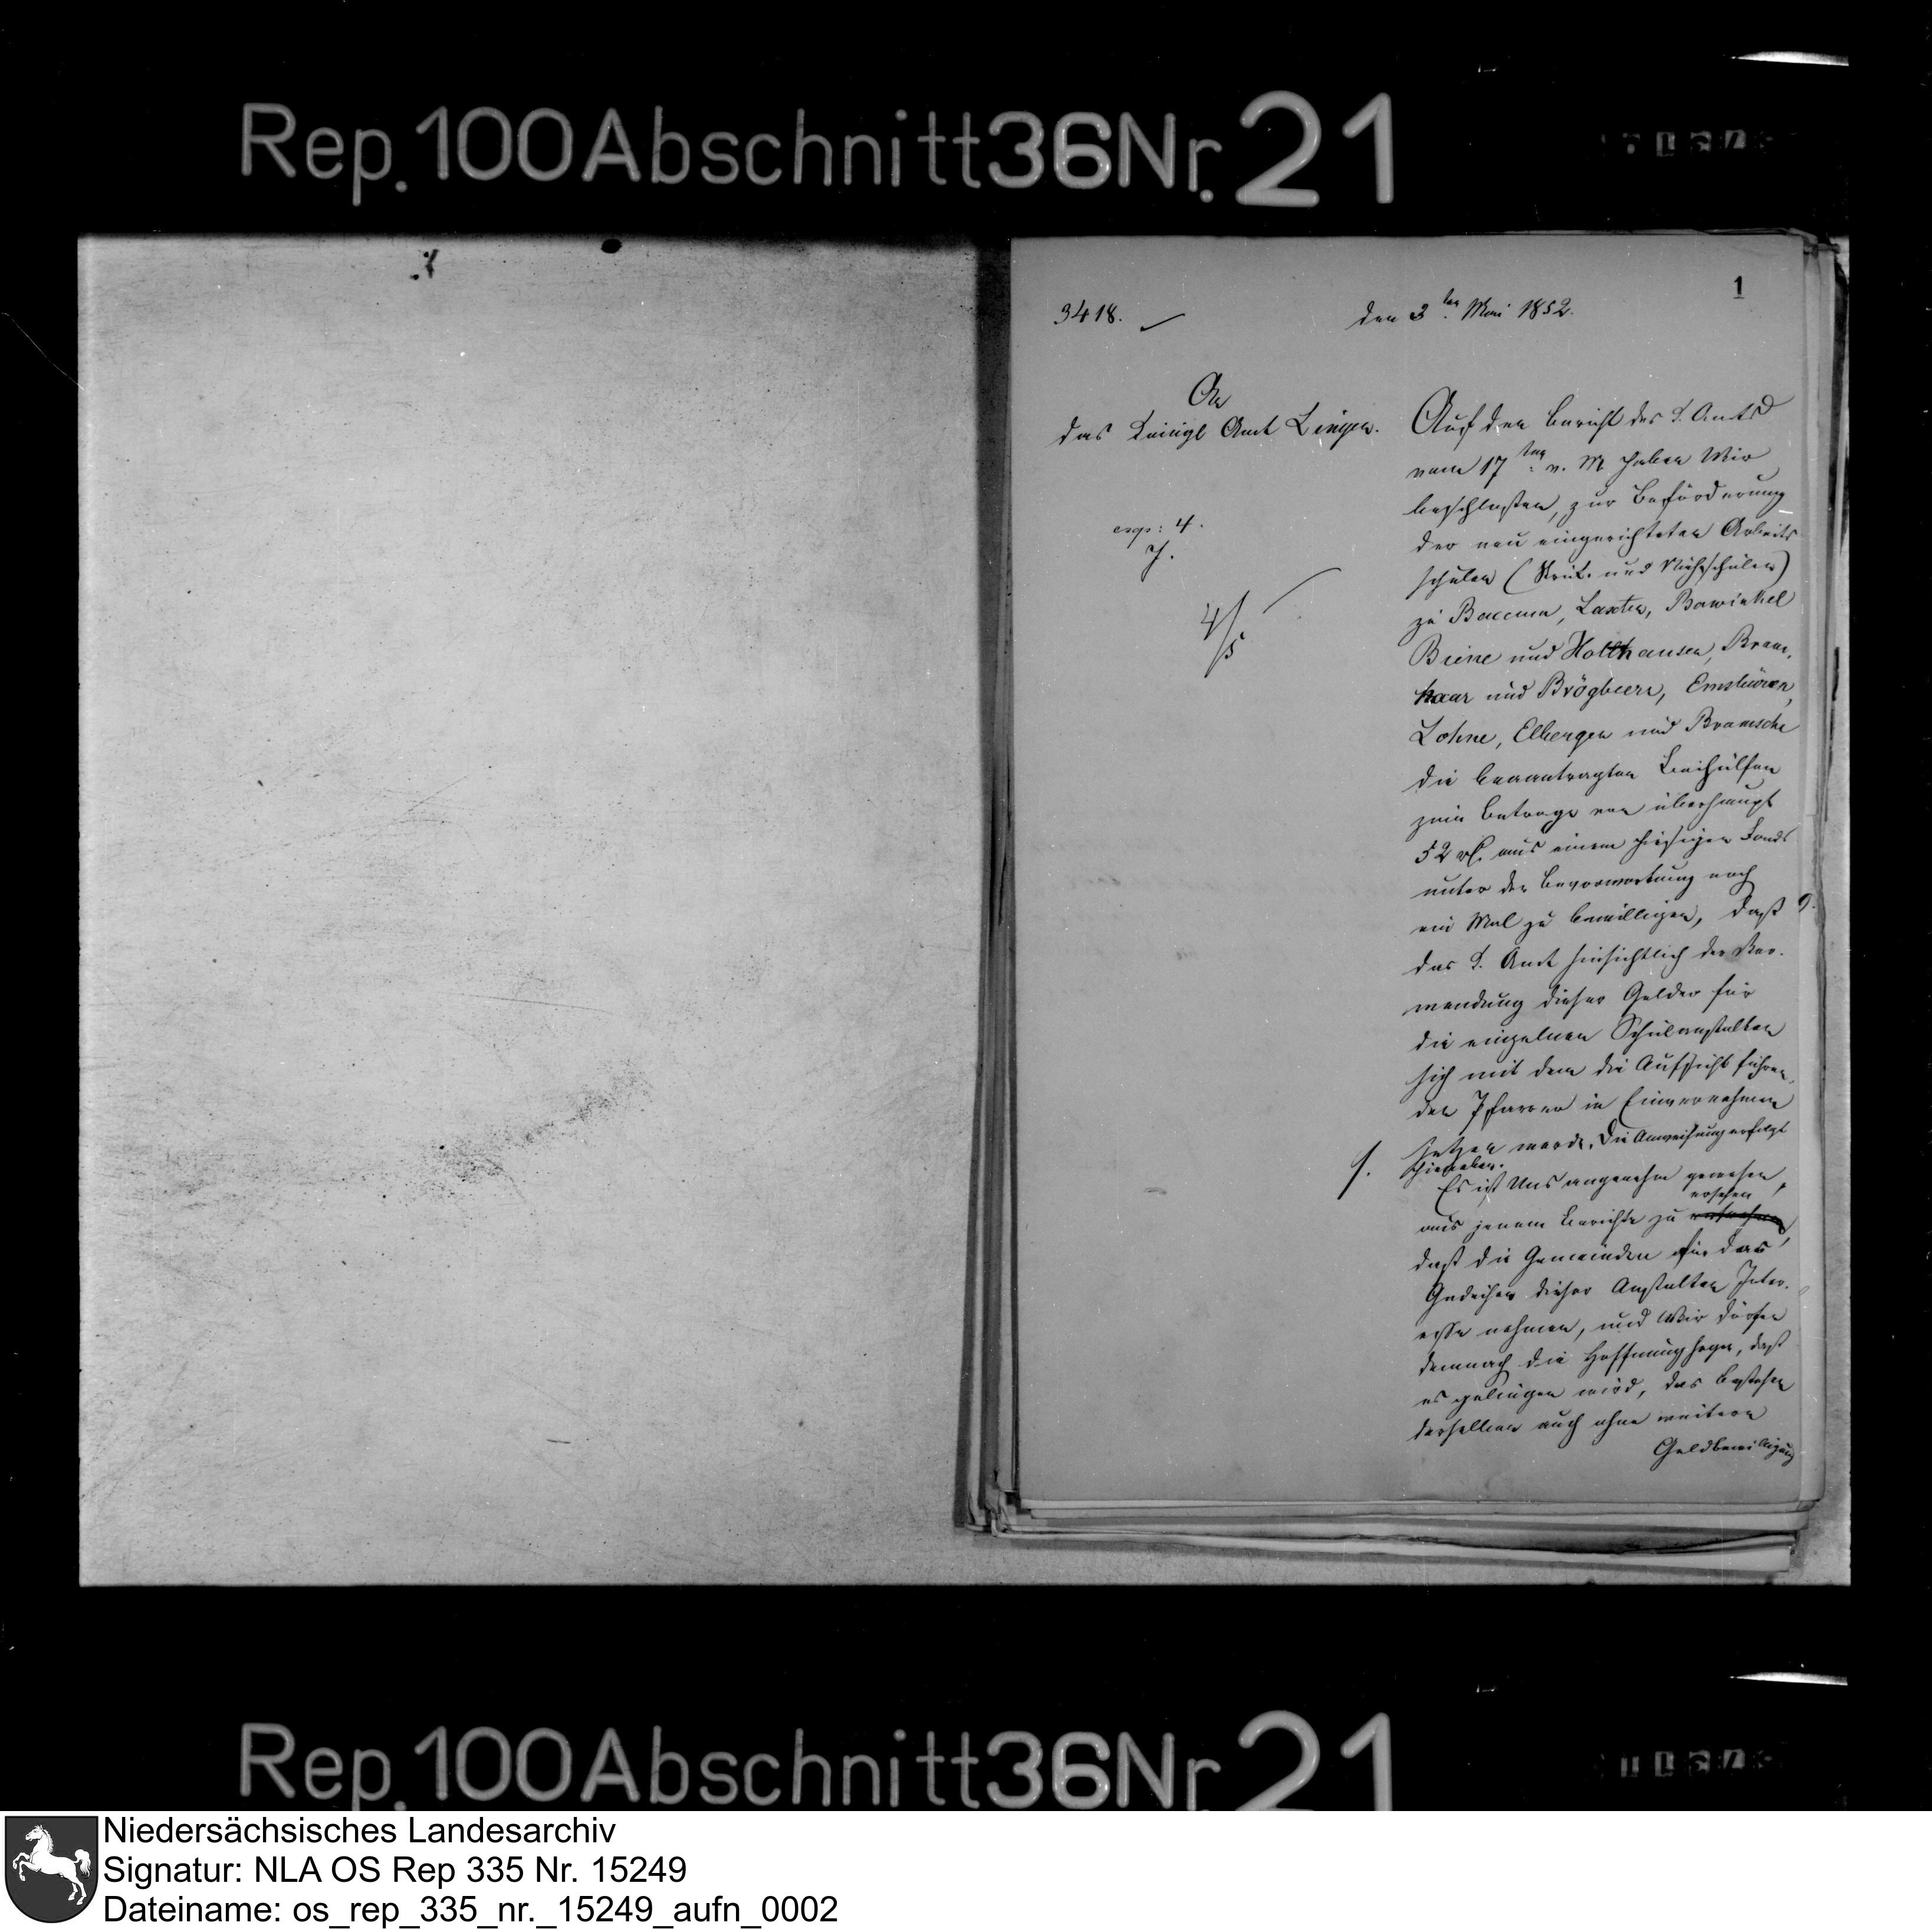 Rep. 100 Abschnitt 36 Nr. 21
1
3418.
den 3ten Mai 1852.
An
das Königl Amt Lingen.
exp: 4.
4/5
Auf den Bericht des K. Amts
vom 17ten v. M haben Wir
beschlossen, zur Beförderung
der neu eingerichteten Arbeits
schulen (Strick- und Nähschulen)
zu Baccum, Laxten, Bawinkel
Biene und Holthausen, Bram-
haar und Brögbern, Emsbüren,
Lohne, Elbergen und Bramsche
die beantragten Beihülfen
zum Betrage von überhaupt
52 rt. aus einem hiesigen Fonds
unter der Bevorwortung noch
ein Mal zu bewilligen, daß
das K. Amt hinsichtlich der Ver-
wendung dieser Gelder für
die einzelnen Schulanstalten
sich mit dem die Aufsicht führen-
den Pfarrer in Einvernehmen
setzen werde. Die Anweisung erfolgt
hieneben.
Es ist Uns angenehm gewesen,
ersehen
aus jenem Berichte zu entnehmen,
daß die Gemeinden für das
Gedeihen dieser Anstalten Inter-
esse nehmen, und Wir dürfen
demnach die Hoffnung hegen, daß
es gelingen wird, das Bestehen
derselben auch ohne weitere
Geldbewilligung
Rep. 100 Abschnitt 36 Nr. 21
Niedersächsisches Landesarchiv
Signatur: NLA OS Rep 335 Nr. 15249
Dateiname: os_rep_335_nr._15249_aufn_0002